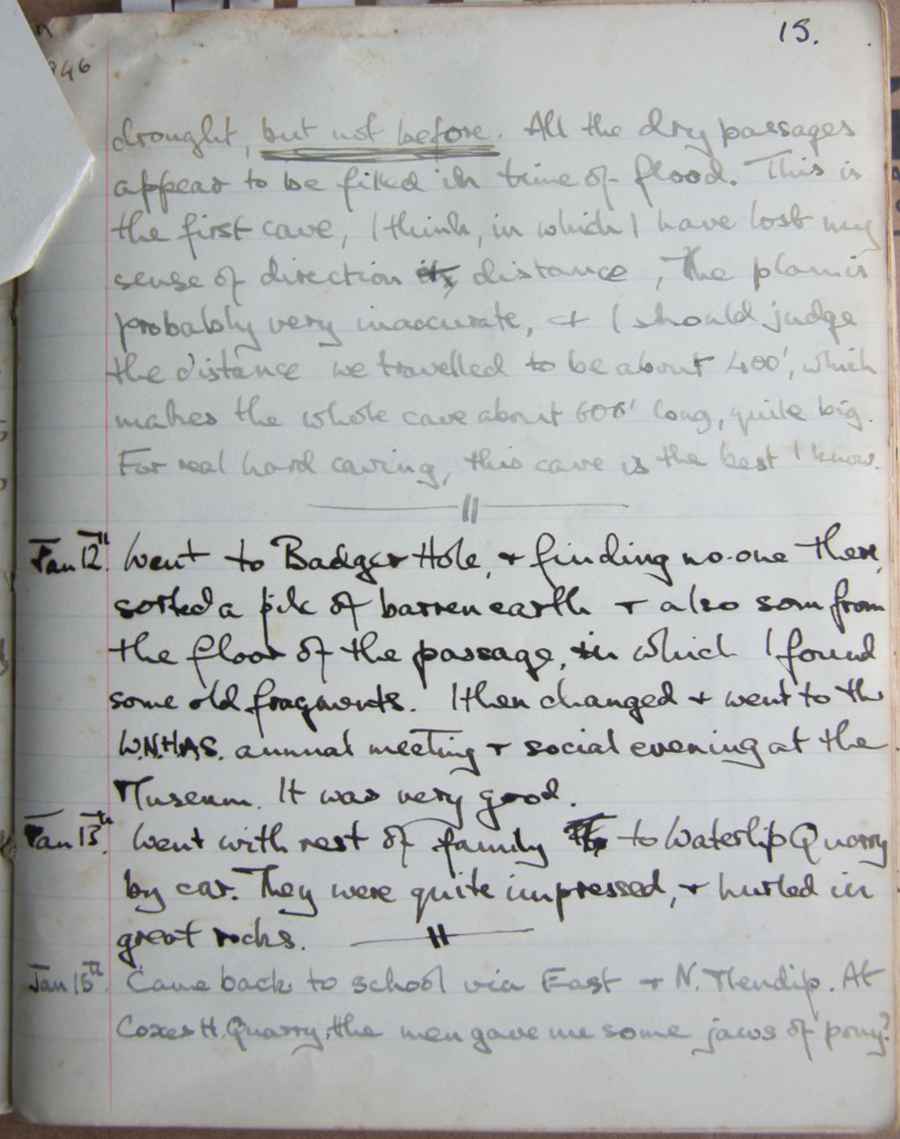 15.
946
drought, but not before. All the dry passages
appear to be filled in time of flood. This is
the first cave, I think, in which I have lost my
sense of direction & distance, The plan is
probably very inaccurate, & I should judge
the distance we travelled to be about 400', which
makes the whole cave about 600' long, quite big.
For real hard caving, this cave is the best I know.
Jan 12th. Went to Badger Hole, & finding no-one there,
sorted a pile of barren earth & also som from
the floor of the passage, in which I found
some old fragments. I then changed & went to the
W.N.H.A.S. annual meeting & social evening at the
Museum. It was very good.
Jan 13th. Went with rest of family to Waterlip Quarry
by car. They were quite impressed, & hurled in
great rocks.
Jan 15th. Came back to school via East & N. Mendip. At
Coxes H. Quarry, the men gave me some jaws of pony?